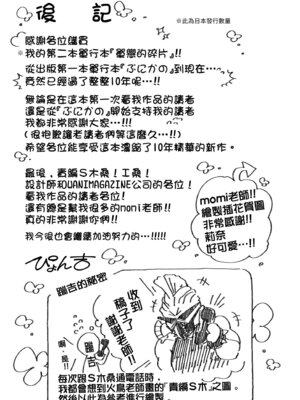 後記
※此為日本發行數量
感謝各位購買
※我的第二本單行本『單戀的碎片』!!
從出版第一本單行本『ぷにかの』到現在…
竟然已經過了整整10年呢…!!
無論是在這本第一次看我作品的讀者
還是從『ぷにかの』開始支持我的讀者
我都非常感謝大家…!!!
(很抱歉讓老讀者們等這麼久…!!)
希望各位能享受這本濃縮了10年精華的新作。
最後，責編S木桑！工桑！
設計師和WANIMAGAZINE公司的各位！
看我作品的讀者各位！
還有總是幫我很多的momi老師!!
真的非常謝謝你們!!
我今後也會繼續加油努力的…!!!!!
momi老師!!
繪製插花賀圖
非常感謝!!
莉奈
好可愛…!!
ぴょん吉
蹦吉的秘密
收到
稿子了
謝謝老師!!
啊、是!!
蹦吉
每次跟S木桑通電話時，
我都會想到火鳥老師畫的"責編S木"之圖。
然後以此為參考進行繪製。